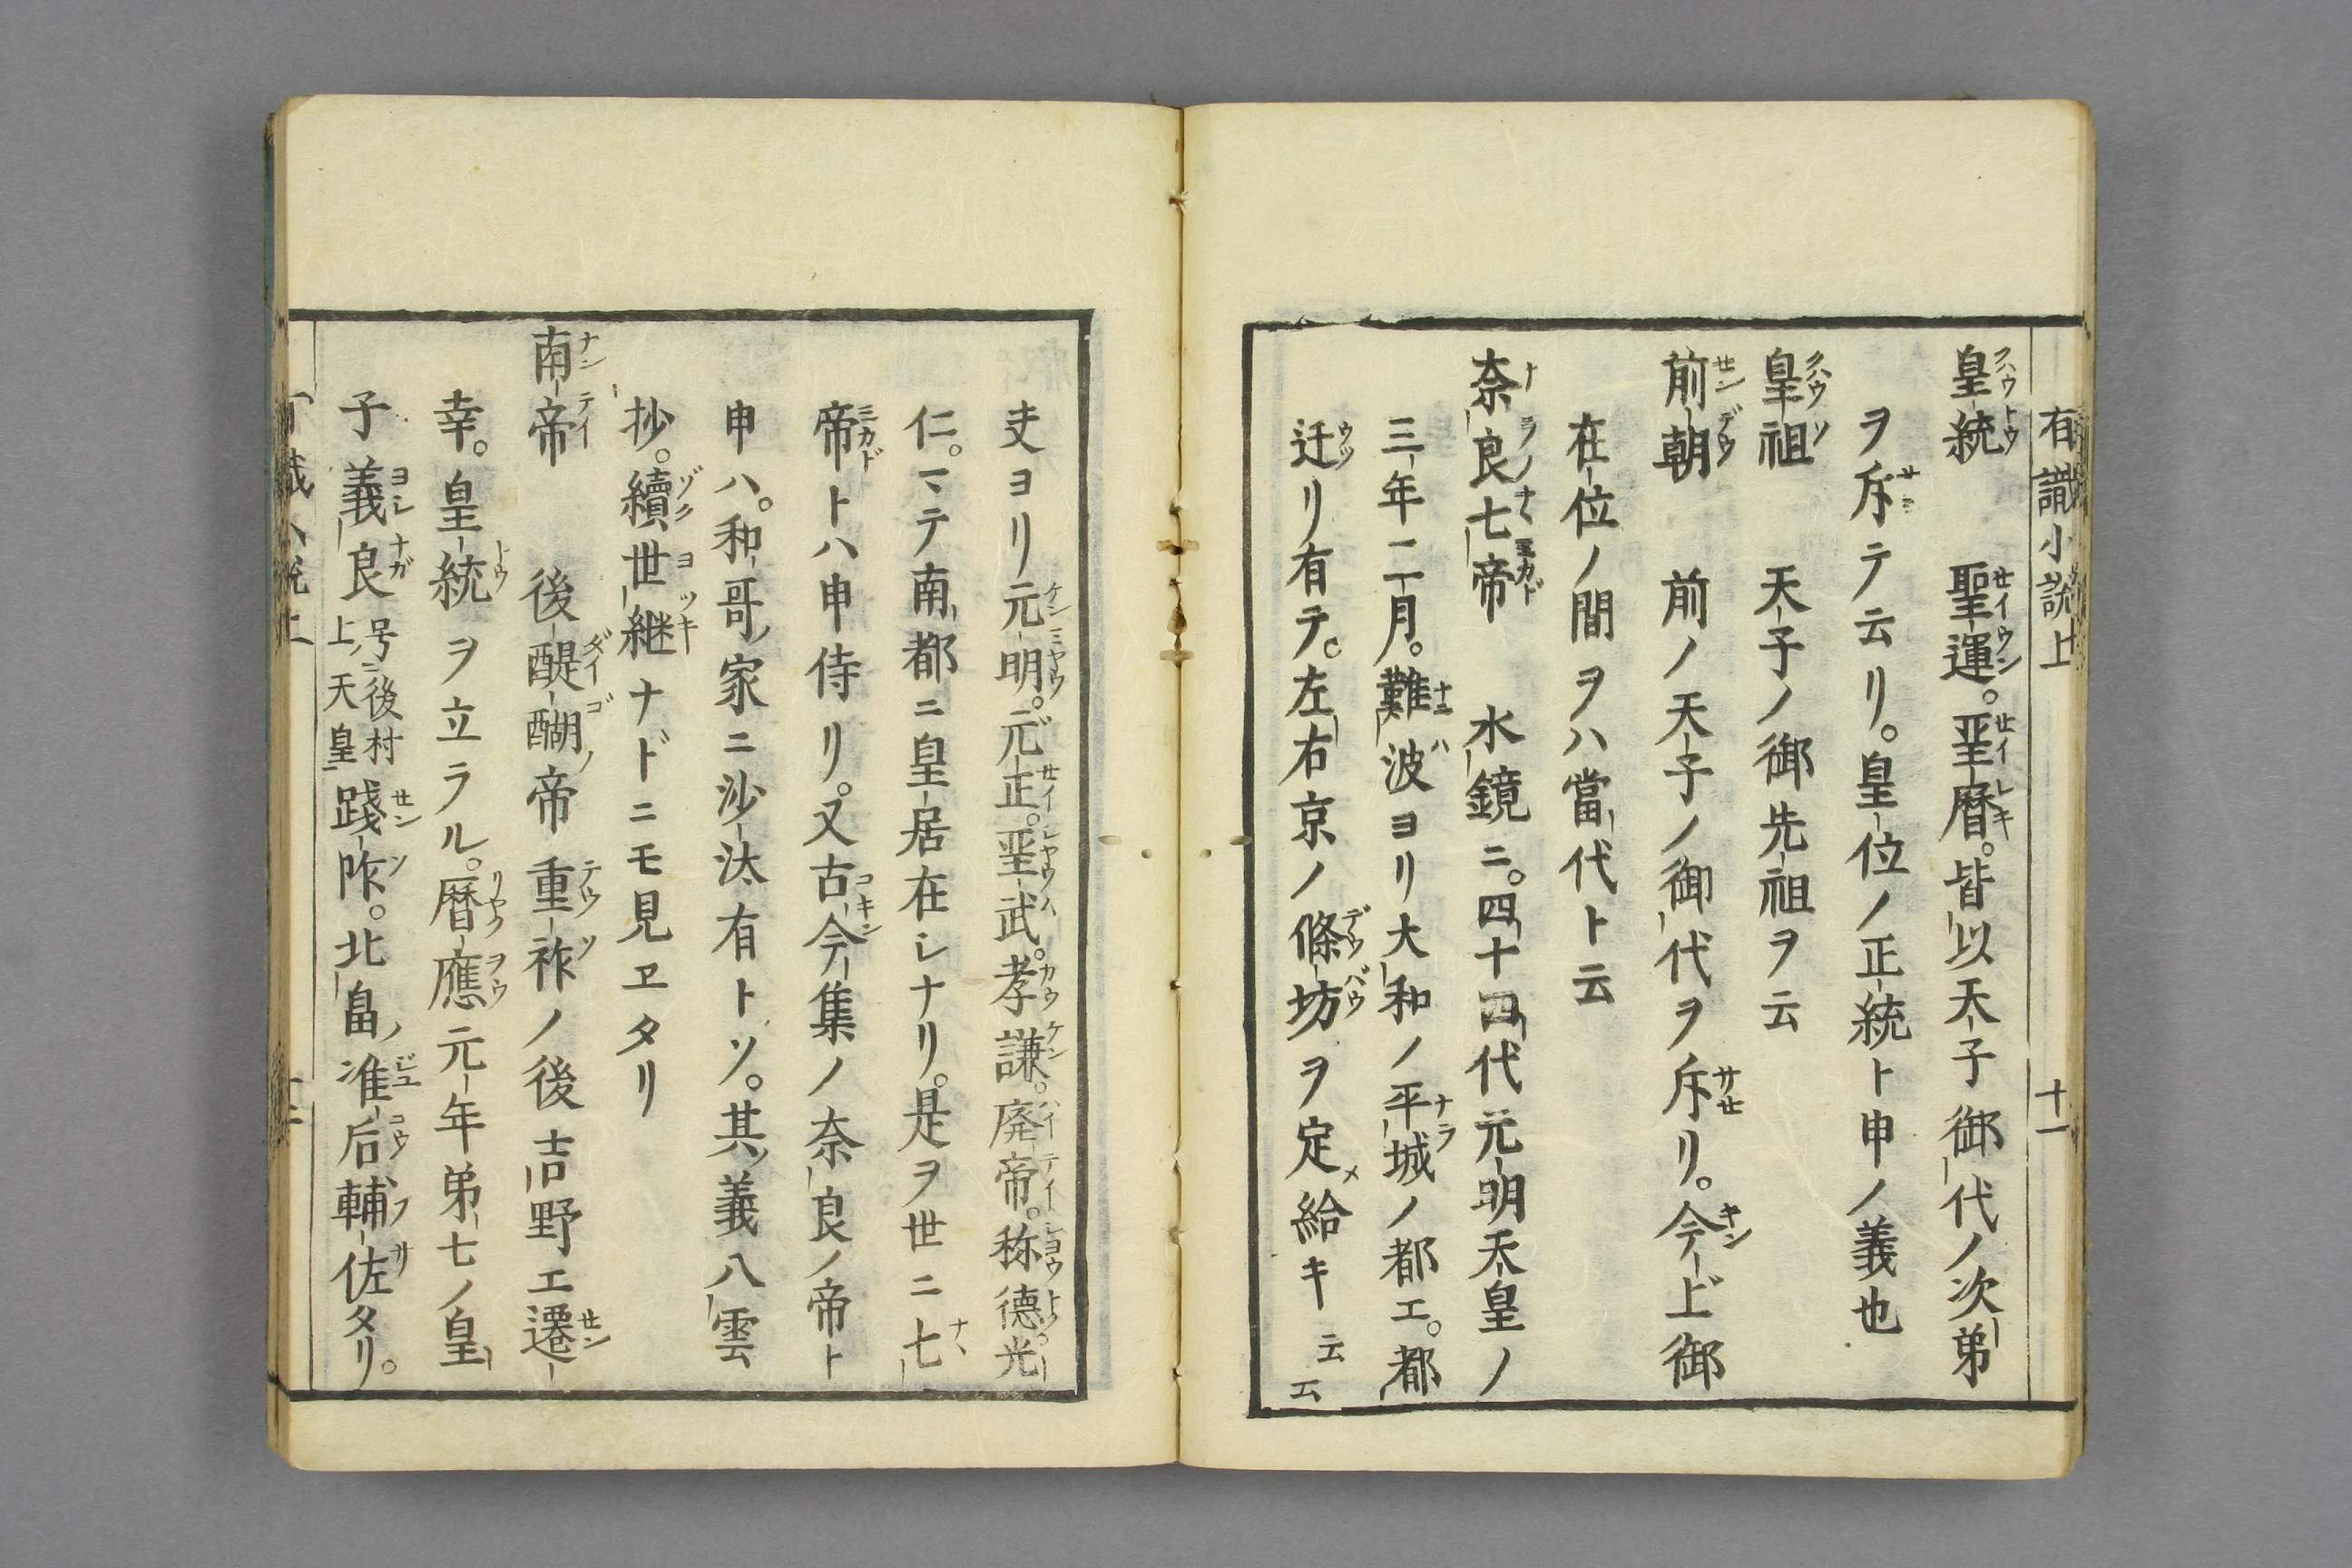 有識小説上 十一
皇統 聖運。聖暦。皆以天子御代ノ次第
ヲ斥テ云リ。皇位ノ正統ト申ノ義也
皇祖 天子ノ御先祖ヲ云
前朝 前ノ天子ノ御代ヲ斥リ。今上御
在位ノ間ヲハ當代ト云
奈良七帝 水鏡ニ。四十四代元明天皇ノ
三年二月。難波ヨリ大和ノ平城ノ都エ。都
迁リ有テ。左右京ノ條坊ヲ定給キ云云
夫ヨリ元明。元正。聖武。孝謙。廃帝。称德光
仁。マテ南都ニ皇居在シナリ。是ヲ世ニ七
帝トハ申侍リ。又古今集ノ奈良ノ帝ト
申ハ。和哥ノ家ニ沙汰有トソ。其義八雲
抄。續世継ナドニモ見ヱタリ
南帝 後醍醐ノ帝重祚ノ後吉野エ遷
幸。皇統ヲ立ラル。暦應元年第七ノ皇
子義良号後村上天皇践阼。北畠ノ准后輔佐タリ。